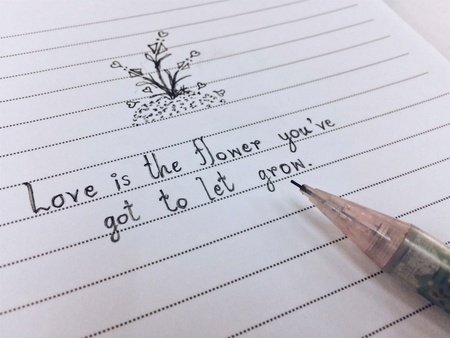 Love is the flower you've
got to let grow.